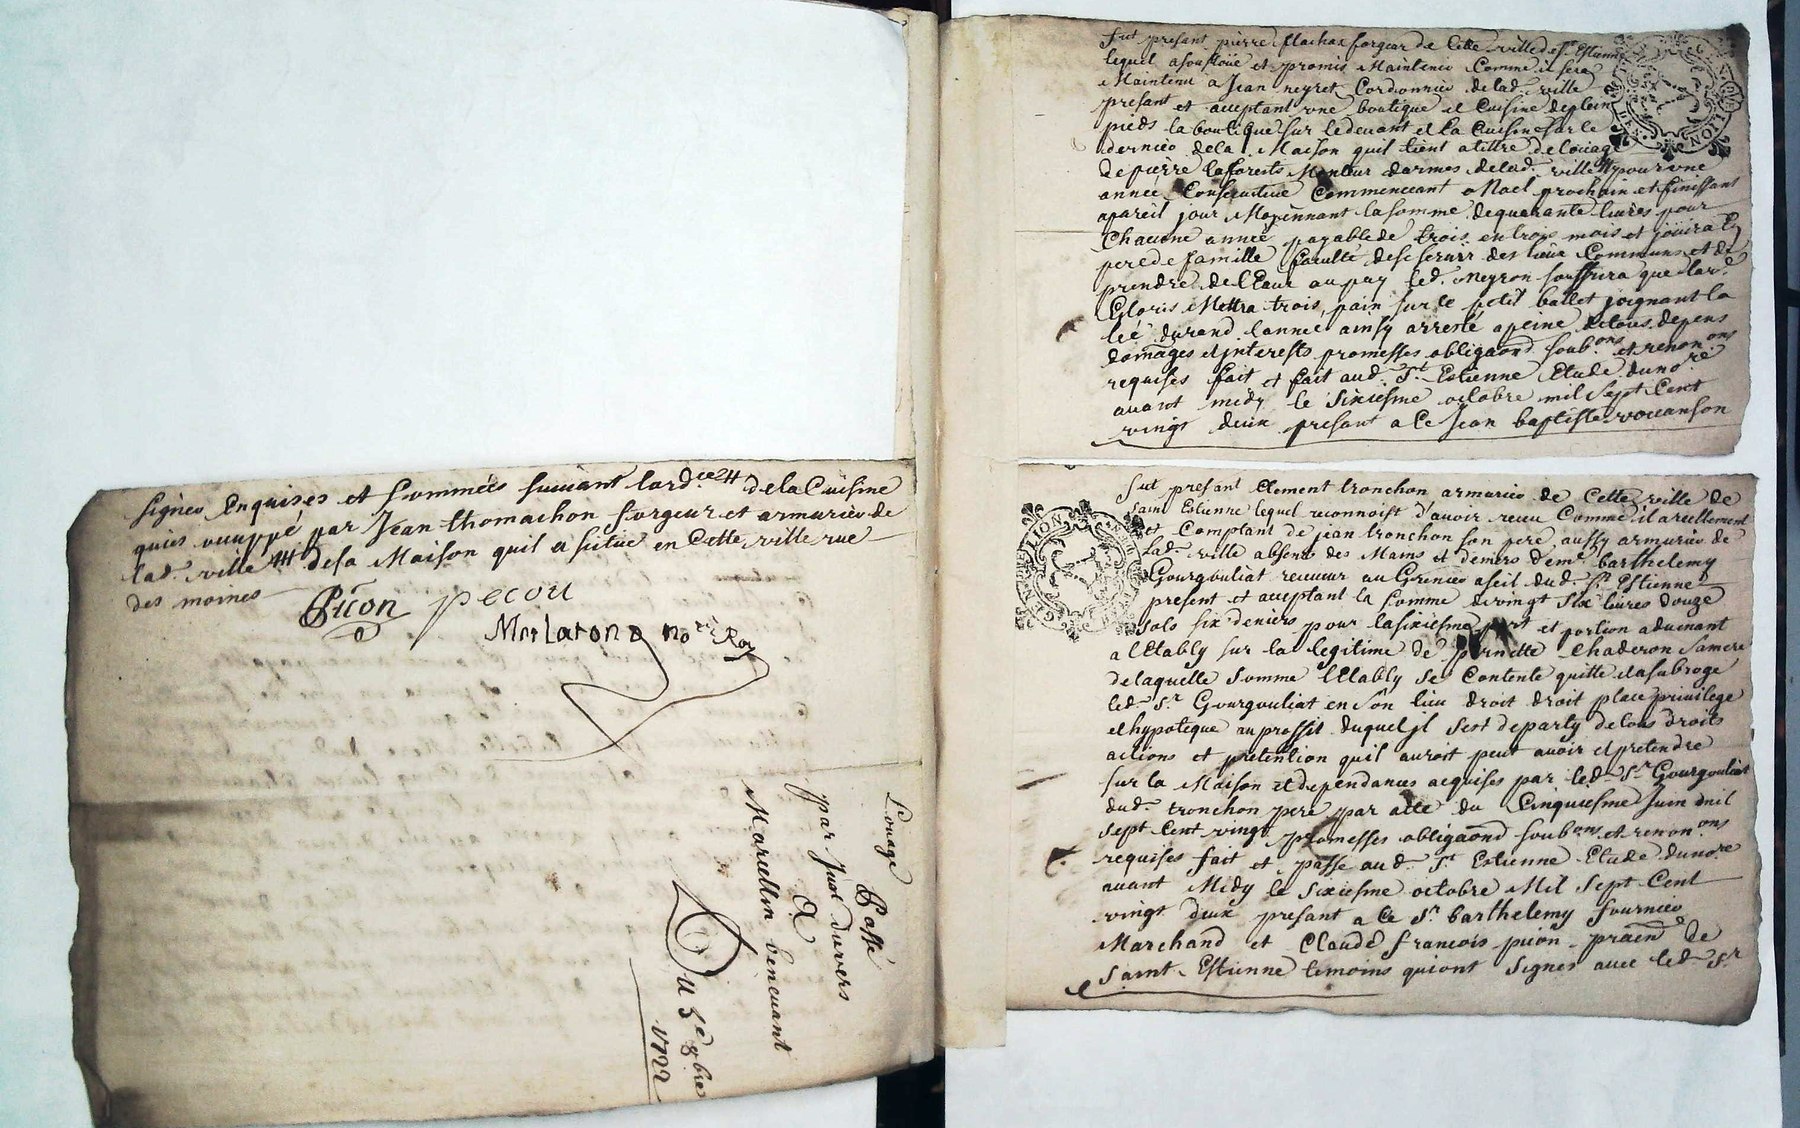 signer Enquises et sommées suivant lard.ce # de la Cuisine
quis ouuppé par Jean thomachon forgeur et armurier de
lad. ville # de sa Maison quil a situé en Cette ville rue
des moines
Piion pecou
no.re Roy
Louage passé
par Just duvers
A
Marcellin bencuant
Du 5e 8bre
1722
fut presant pierre flachat forgeur de Cette ville de st Estienne
lequel a soufloüé et promis Maintenir Comme il sera
Maintenu a Jean neyret Cordonnier de lad. ville
presant et acceptant vne boutique et Cuisine de plein
pieds la boutique sur le devant et la Cuisine sur le
dernier de la Maison quil tient a titre de loüage
de pierre laforests Monteur darmes de lad. ville # pour vne
année Consecutive Commenceant a Noel prochain et finissant
apareil jour Moyennant la somme de quarante livres pour
Chacune année payable de trois en trois mois et joüira En
pere de famille faculté de se servir des lieux Communs et de
prendre de l'Eaue au puy led. neyron souffrira que lad.
Gloris Mettra trois pain sur le petit ballet joignant la
durand lannée ainsy arresté a peine de tous depens
domages et jnterests promesses obligaond soub.ons et renon.ons
requises fait et fait aud. St Estienne Etude du no.re
avant midy le sixiesme octobre mil sept Cent
vingt deux presant a Ce Jean baptiste vouanson
fut presant Clement tronchon armurier de Cette ville de
saint Estienne lequel reconnoist d'avoir receu Comme il a reellement
et Comptant de jean tronchon son pere aussy armurier de
lad. ville absent des Mains et deniers de me barthelemy
Gourgouliat receveur au Grenier a seil dud. St Estienne
present et acceptant la somme de vingt six livres douze
sols six deniers pour la sixiesme part et portion advenant
a l'Etably sur la legitime de pernette Chaderon sa mere
de laquelle somme l'Etably se Contente quitte et a subroge
led. Sr Gourgouliat en son lieu droit droit place privilege
et hypoteque au proffit duquel jl sest departy de tous droits
actions et pretention quil auroit peut avoir et pretendre
sur la Maison et dependances acquises par led. Sr Gourgouliat
dud. tronchon pere par acte du Cinquiesme Juin mil
sept Cent vingt promesses obligaond soub.ons et renon.ons
requises fait et passe aud. St Estienne Etude du no.re
avant Midy le sixiesme octobre Mil sept Cent
vingt deux presant a Ce Sr barthelemy fournier
Marchand et Claude francois piion pratien de
saint Estienne temoins qui ont signes avec led. Sr